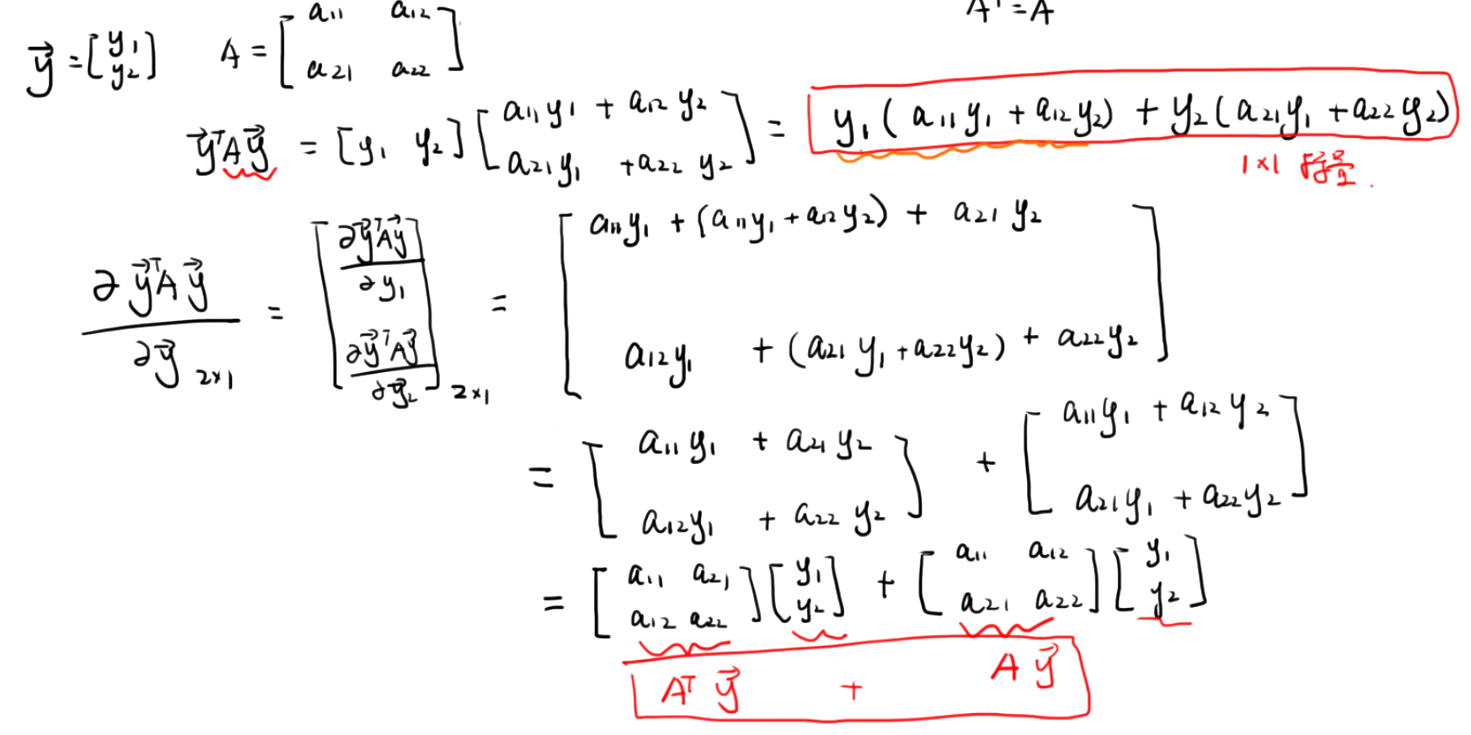 Aᵀ = A
y⃗ = [y₁; y₂] A = [a₁₁ a₁₂; a₂₁ a₂₂]
y⃗ᵀAy⃗ = [y₁ y₂][a₁₁y₁ + a₁₂y₂; a₂₁y₁ + a₂₂y₂] = y₁(a₁₁y₁ + a₁₂y₂) + y₂(a₂₁y₁ + a₂₂y₂)
1×1
∂y⃗ᵀAy⃗/∂y⃗ 2×1 = [∂y⃗ᵀAy⃗/∂y₁; ∂y⃗ᵀAy⃗/∂y⃗₂] 2×1 = [a₁₁y₁ + (a₁₁y₁ + a₁₂y₂) + a₂₁y₂; a₁₂y₁ + (a₂₁y₁ + a₂₂y₂) + a₂₂y₂]
= [a₁₁y₁ + a₂₁y₂; a₁₂y₁ + a₂₂y₂] + [a₁₁y₁ + a₁₂y₂; a₂₁y₁ + a₂₂y₂]
= [a₁₁ a₂₁; a₁₂ a₂₂][y₁; y₂] + [a₁₁ a₁₂; a₂₁ a₂₂][y₁; y₂]
Aᵀy⃗ + Ay⃗